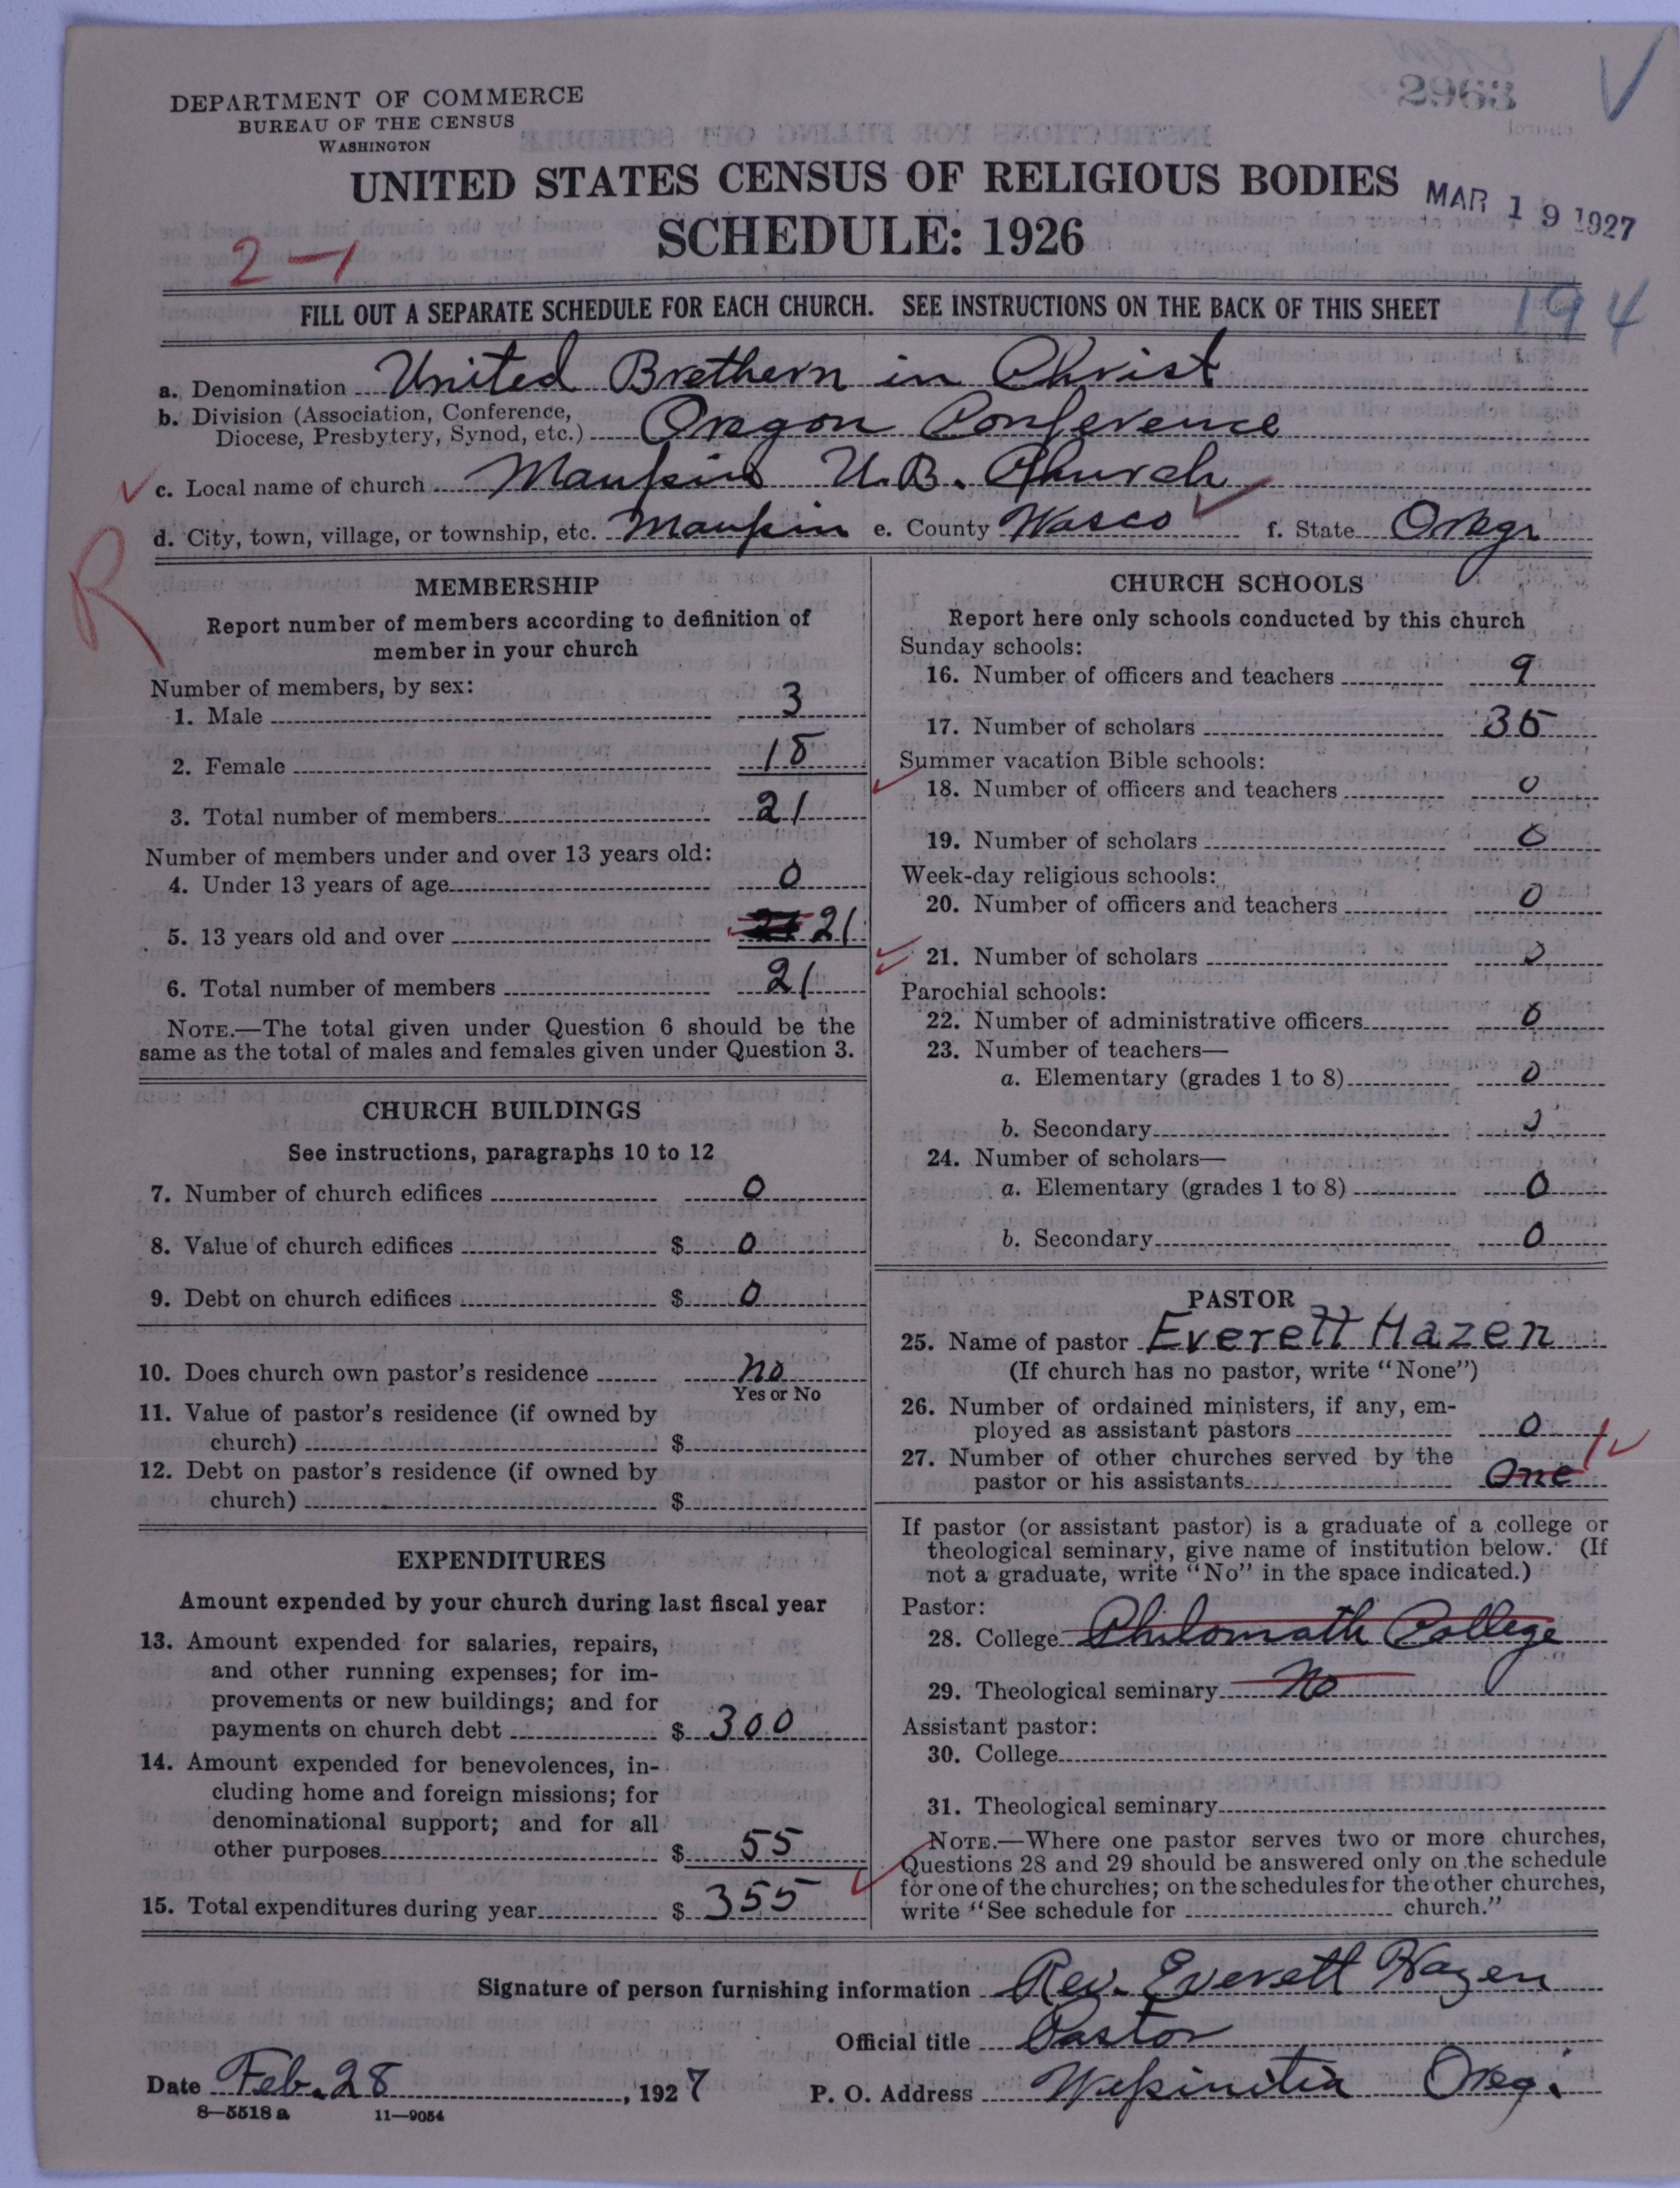 2963
DEPARTMENT OF COMMERCE
BUREAU OF THE CENSUS
WASHINGTON
UNITED STATES CENSUS OF RELIGIOUS BODIES
MAR 19 1927
SCHEDULE: 1926
2-1
FILL OUT A SEPARATE SCHEDULE FOR EACH CHURCH. SEE INSTRUCTIONS ON THE BACK OF THIS SHEET
194
a. Denomination United Brethern in Christ
b. Division (Association, Conference,
Diocese, Presbytery, Synod, etc.) Oregon Conference
c. Local name of church Maupin U.B. Church
d. City, town, village, or township, etc. Maupin e. County Wasco f. State Oregn
R
MEMBERSHIP
Report number of members according to definition of
member in your church
Number of members, by sex:
1. Male 3
2. Female 18
3. Total number of members 21
Number of members under and over 13 years old:
4. Under 13 years of age 0
5. 13 years old and over 21
6. Total number of members 21
NOTE.—The total given under Question 6 should be the
same as the total of males and females given under Question 3.
CHURCH BUILDINGS
See instructions, paragraphs 10 to 12
7. Number of church edifices 0
8. Value of church edifices $ 0
9. Debt on church edifices $ 0
10. Does church own pastor's residence no
Yes or No
11. Value of pastor's residence (if owned by
church) $
12. Debt on pastor's residence (if owned by
church) $
EXPENDITURES
Amount expended by your church during last fiscal year
13. Amount expended for salaries, repairs,
and other running expenses; for im-
provements or new buildings; and for
payments on church debt $ 300
14. Amount expended for benevolences, in-
cluding home and foreign missions; for
denominational support; and for all
other purposes $ 55
15. Total expenditures during year $ 355
CHURCH SCHOOLS
Report here only schools conducted by this church
Sunday schools:
16. Number of officers and teachers 9
17. Number of scholars 35
Summer vacation Bible schools:
18. Number of officers and teachers 0
19. Number of scholars 0
Week-day religious schools:
20. Number of officers and teachers 0
21. Number of scholars 0
Parochial schools:
22. Number of administrative officers 0
23. Number of teachers—
a. Elementary (grades 1 to 8) 0
b. Secondary 0
24. Number of scholars—
a. Elementary (grades 1 to 8) 0
b. Secondary 0
PASTOR
25. Name of pastor Everett Hazen
(If church has no pastor, write "None")
26. Number of ordained ministers, if any, em-
ployed as assistant pastors 0
27. Number of other churches served by the 1
pastor or his assistants One
If pastor (or assistant pastor) is a graduate of a college or
theological seminary, give name of institution below. (If
not a graduate, write "No" in the space indicated.)
Pastor:
28. College Philomath College
29. Theological seminary No
Assistant pastor:
30. College
31. Theological seminary
NOTE.—Where one pastor serves two or more churches,
Questions 28 and 29 should be answered only on the schedule
for one of the churches; on the schedules for the other churches,
write "See schedule for church."
Signature of person furnishing information Rev. Everett Hazen
Official title Pastor
Date Feb. 28, 1927 P. O. Address Wapinitia Oreg.
8—5518 a 11—9054